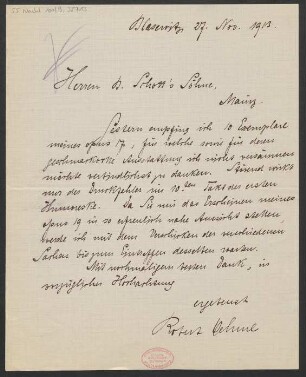 Blasewitz 27. Nov. 1913.
Herren B. Schott's Söhne,
Mainz
Gestern empfing ich 10 Exemplare
meines opus 17, für welche sowie für deren
geschmackvolle Ausstattung ich nicht versäumen
möchte verbindlichst zu danken. Störend wirkt
nur der Druckfehler im 10ten Takt der ersten
Humoreske. Da Sie mir das Erscheinen meines
opus 19 in so erfreulich nahe Aussicht stellen,
werde ich mit dem Verschicken der verschiedenen
Sachen bis zum Eintreffen desselben warten.
Mit nochmaligem besten Dank, in
vorzüglicher Hochachtung
ergebenst
Robert